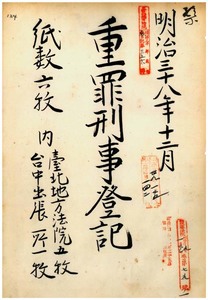 明治三十八年十二月
重罪刑事登記
紙數六枚
内
臺北地方法院五枚
台中出張所一枚